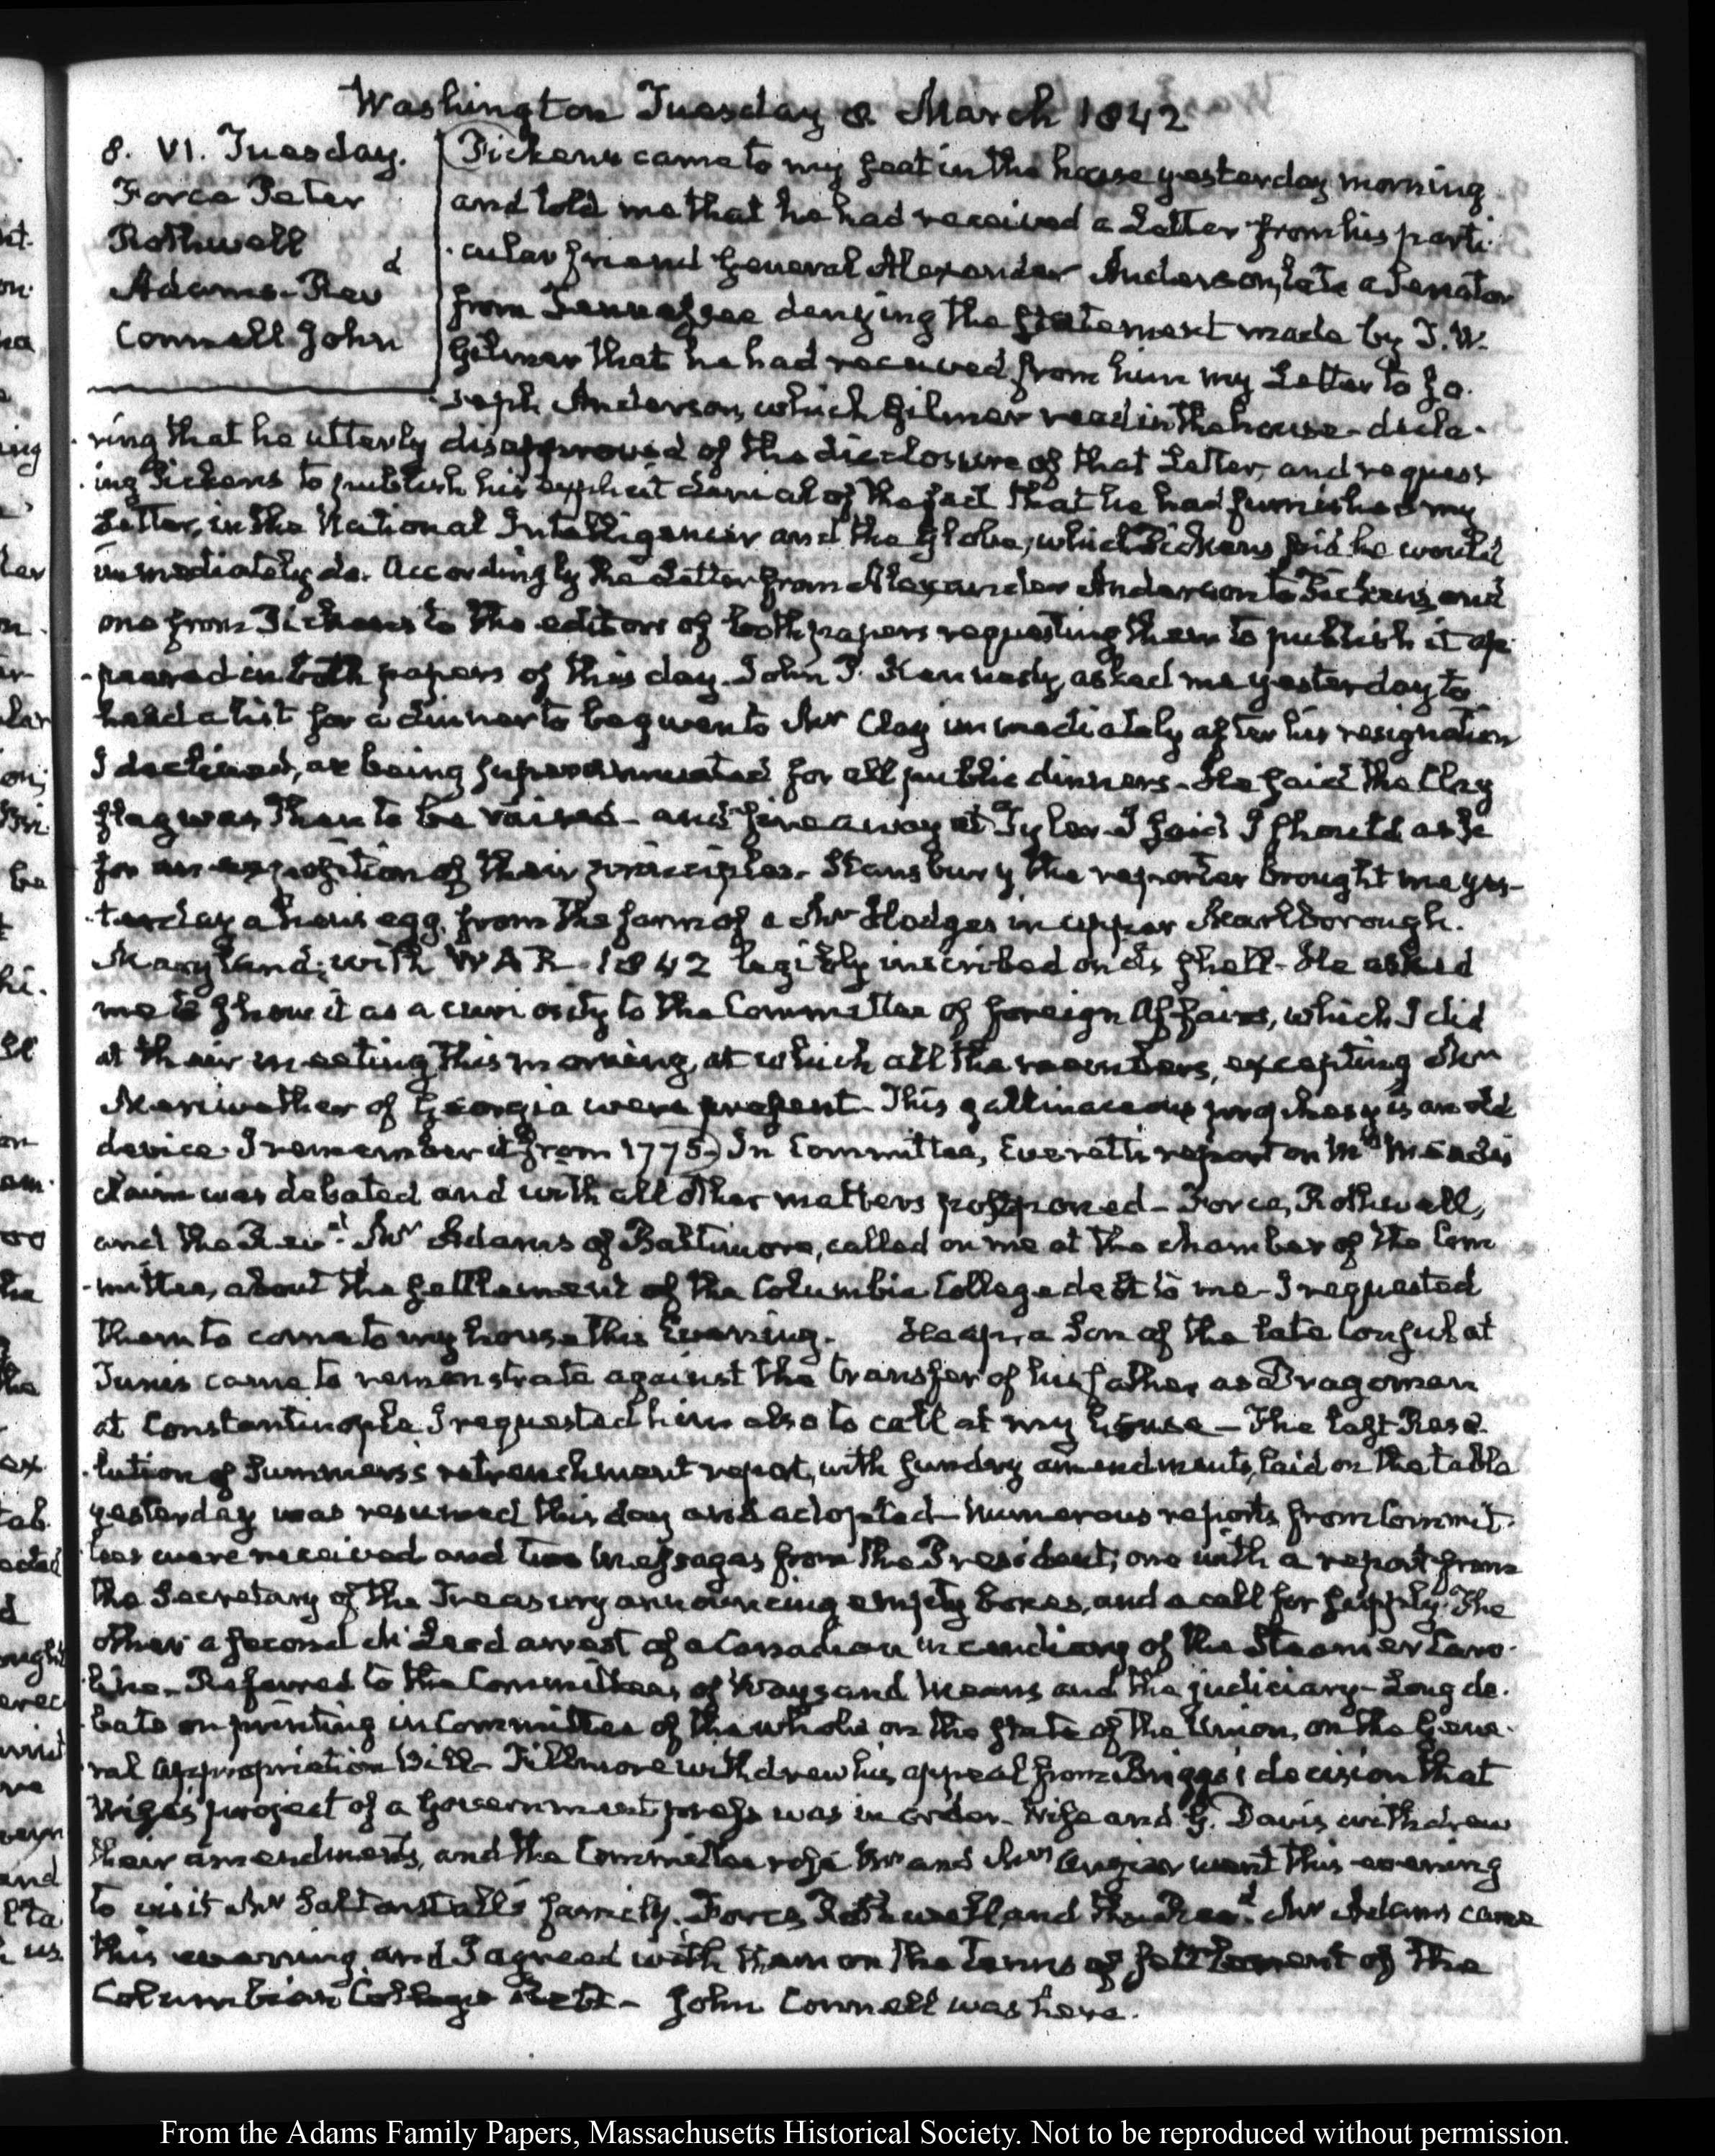 Washington Tuesday 8. March 1842
8. VI. Tuesday.
Force Peter
Rothwell
Adams-Revd
Connell John
Pickens came to my seat in the house yesterday morning
and told me that he had received a Letter from his parti-
cular friend General Alexander Anderson, late a Senator
from Tennessee denying the statement made by T. W.
Gilmer that he had received from him my Letter to Jo-
seph Anderson, which Gilmer read in the house - decla-
ring that he utterly disapproved of the disclosure of that Letter, and request-
ing Pickens to publish his explicit denial of the fact that he had furnished my
Letter, in the National Intelligencer and the Globe, which Pickens said he would
immediately do. Accordingly the Letter from Alexander Anderson to Pickens, and
one from Pickens to the editors of both papers requesting them to publish it ap-
peared in both papers of this day. John P. Kennedy, asked me yesterday to
head a list for a dinner to be given to Mr Clay immediately after his resignation
I declined, as being superannuated for all public dinners - He said the Clay
flag was then to be raised - and fire away at Tyler - I said I should ask
for an exposition of their principles. Stansbury the reporter brought me yes-
terday a hen's egg, from the farm of a Mr Hodges in upper Marlborough.
Maryland; with WAR 1842 legibly inscribed on its shell - He asked
me to show it as a curiosity to the Committee of foreign Affairs, which I did
at their meeting this morning, at which all the members, excepting Mr
Meriwether of Georgia were present - This gallinaceous prophesy is an old
device. I remember it from 1775. In Committee, Everett's report on Meade's
claim was debated and with all other matters postponed - Force, Rothwell,
and the Revd. Mr Adams of Baltimore, called on me at the chamber of the Com
-mittee, about the settlement of the Columbia College debt to me - I requested
them to come to my house this Evening. Heap, a Son of the late Consul at
Tunis came to remonstrate against the transfer of his father as Dragoman
at Constantinople I requested him also to call at my house - The last Reso-
lution of Summers's retrenchment report, with sundry amendments, laid on the table
yesterday was resumed this day and adopted - Numerous reports from Commit-
tees were received and two Messages from the President; one with a report from
the Secretary of the Treasury announcing empty boxes, and a call for supply. The
other a second arrest of a Canadian incendiary of the Steamer Caro-
line - Referred to the Committees, of Ways and Means and the judiciary - Long de-
bate on printing in Committee of the whole on the state of the Union, on the Gene-
ral Appropriation Bill - Fillmore withdrew his appeal from Briggs's decision that
Wise's project of a Government press was in order - Wise and G. Davis withdrew
their amendments, and the Committee rose Mr and Mrs Angier went this evening
to visit Mr Saltonstall's family. Force, Rothwell, and the Revd. Mr Adams came
this evening, and I agreed with them on the terms of settlement of the
Columbian College Debt - John Connell was here.
From the Adams Family Papers, Massachusetts Historical Society. Not to be reproduced without permission.